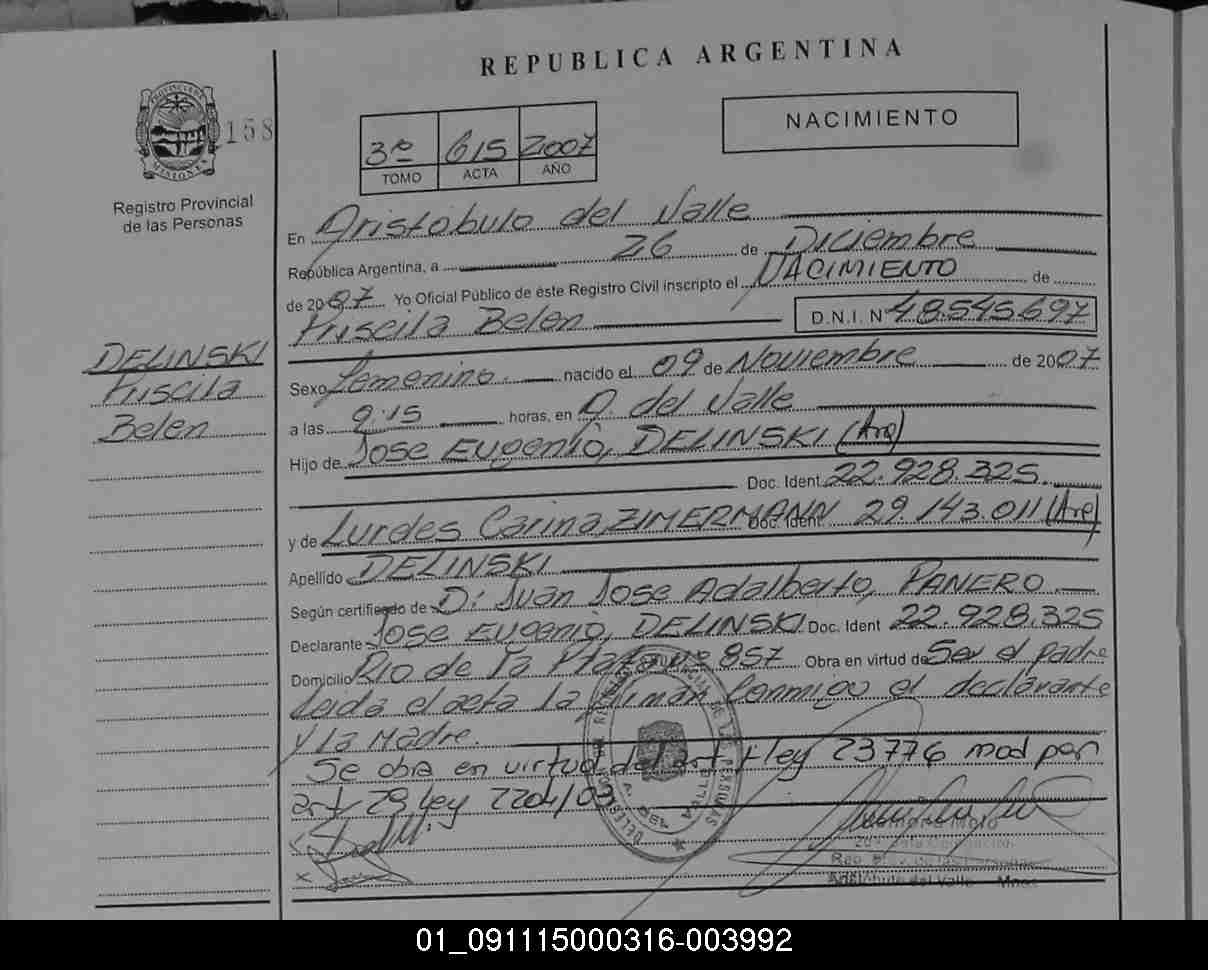 REPUBLICA ARGENTINA
PROVINCIA DE
MISIONES
158
Registro Provincial
de las Personas
3º 615 2007
TOMO ACTA AÑO
NACIMIENTO
En Aristóbulo del Valle
República Argentina, a 26 de Diciembre
de 2007 Yo Oficial Público de este Registro Civil inscripto el NACIMIENTO de
Priscila Belen D.N.I. Nº 48.545.697
DELINSKI
Priscila
Belen
Sexo femenino. nacido el 09 de Noviembre de 2007
a las 9:15 horas, en A. del Valle
Hijo de Jose Eugenio, DELINSKI (Arg)
Doc. Ident. 22.928.325
y de Lurdes Carina, ZIMERMANN Doc. Ident. 29.143.011 (Arg)
Apellido DELINSKI
Según certificado de Dr Juan Jose Adalberto, PANERO
Declarante Jose Eugenio, DELINSKI Doc. Ident 22.928.325
Domicilio Rio de la Plata nº 857 Obra en virtud de Ser el padre
Leida el acta la firman Conmigo el declarante
y la Madre.
Se obra en virtud del art 1 ley 23776 mod por
art 29 ley 2204/03
DE LAS PERSONAS
Aristóbulo del Valle - Mnes
01_091115000316-003992